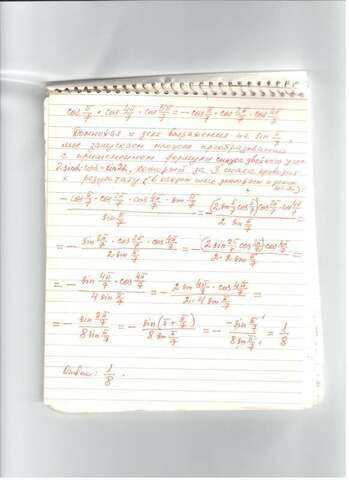 cos π/7 · cos 4π/7 · cos 5π/7 = -cos π/7 · cos 2π/7 · cos 4π/7
Домножая и деля выражение на sin π/7
мы запускаем процесс преобразований
с применением формулы синуса двойного угла
2sinα·cosα = sin2α, который за 3 шага приведёт
к результату
-cos π/7 · cos 2π/7 · cos 4π/7 · sin π/7 / sin π/7 = -(2 sin π/7 cos π/7) cos 2π/7 · cos 4π/7 / 2 sin π/7 =
= - sin 2π/7 · cos 2π/7 · cos 4π/7 / 2 · sin π/7 = -(2 sin 2π/7 cos 2π/7) cos 4π/7 / 2 · 2 sin π/7 =
= - sin 4π/7 · cos 4π/7 / 4 sin π/7 = - 2 sin 4π/7 · cos 4π/7 / 2 · 4 sin π/7 =
= - sin 8π/7 / 8 sin π/7 = - sin(π + π/7) / 8 sin π/7 = - -sin π/7 / 8 sin π/7 = 1/8
Ответ: 1/8.